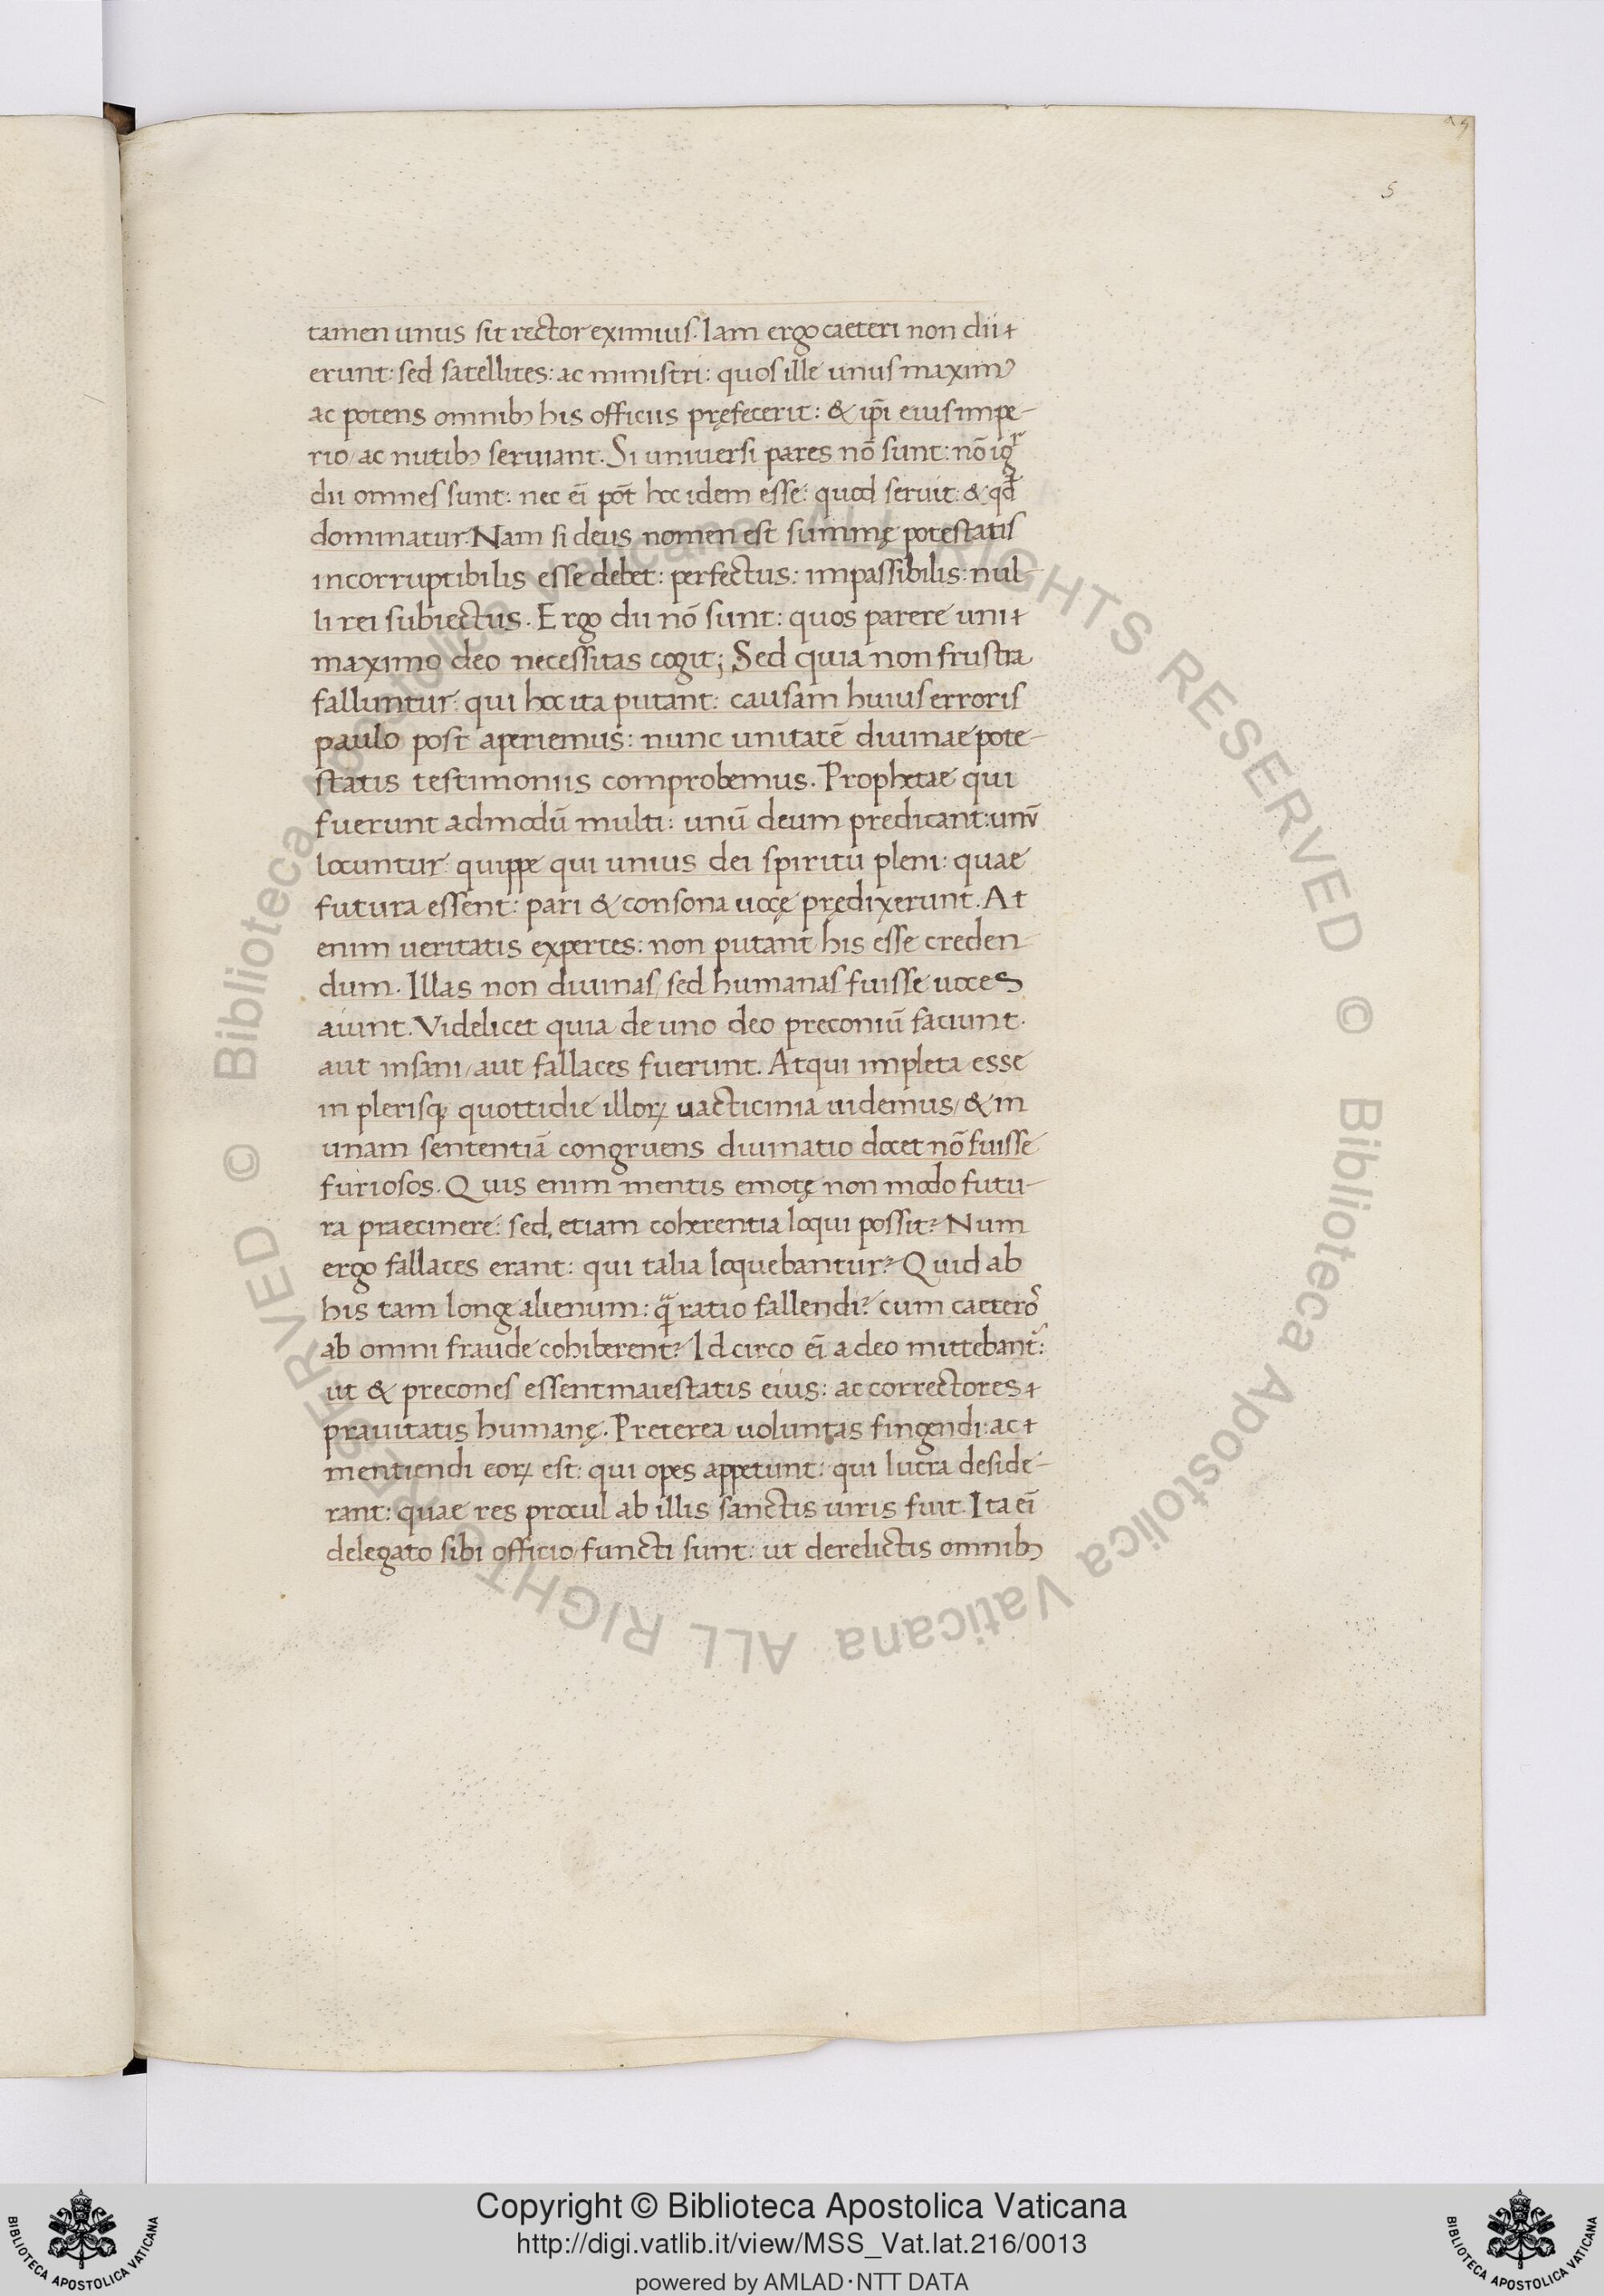 a 5
5
tamen unus sit rector eximius. Iam ergo caeteri non dii
erunt: sed satellites: ac ministri: quos ille unus maximꝰ
ac potens omnibꝫ his officiis pręfecerit: & ip̄i eius impe-
rio/ ac nutibꝫ seruiant. Si uniuersi pares nō sunt: nō igͬ
dii omnes sunt: nec ei᷈ pōt hoc idem esse: quod seruit: & qđ
dominatur. Nam si deus nomen est summę potestatis
incorruptibilis esse debet: perfectus: impassibilis: nul-
li rei subiectus. Ergo dii nō sunt: quos parere uni
maximo deo necessitas cogit; Sed quia non frustra
falluntur: qui hoc ita putant: causam huius erroris
paulo post aperiemus: nunc unitatē diuinae pote-
statis testimoniis comprobemus. Prophetae qui
fuerunt admodū multi: unū deum predicant: unū
locuntur: quippe qui unius dei spiritu pleni: quae
futura essent: pari & consona uocę prędixerunt. At
enim ueritatis expertes: non putant his esse creden-
dum. Illas non diuinas/ sed humanas fuisse uoces
aiunt. Videlicet quia de uno deo preconiū faciunt.
aut insani/ aut fallaces fuerunt. Atqui impleta esse
in plerisqꝫ quottidie illoꝝ uacticinia uidemus/ & in
unam sententiā congruens diuinatio docet nō fuisse
furiosos. Quis enim mentis emotę non modo futu-
ra praecinere: sed, etiam coherentia loqui possit? Num
ergo fallaces erant: qui talia loquebantur? Quid ab
his tam longę alienum: q̄ ratio fallendi? cum caeteros
ab omni fraude cohiberent? Id circo ei᷈ a deo mittebant᷑:
ut & precones essent maiestatis eius: ac correctores
prauitatis humanę. Preterea uoluntas fingendi: ac
mentiendi eoꝝ est: qui opes appetunt: qui lucra deside-
rant: quae res procul ab illis sanctis uiris fuit. Ita ei᷈
delegato sibi officio/ functi sunt: ut derelictis omnibꝫ
© Biblioteca Apostolica Vaticana ALL RIGHTS RESERVED © Biblioteca Apostolica Vaticana ALL RIGHTS RESERVED
Copyright © Biblioteca Apostolica Vaticana
http://digi.vatlib.it/view/MSS_Vat.lat.216/0013
powered by AMLAD·NTT DATA
BIBLIOTECA APOSTOLICA VATICANA
BIBLIOTECA APOSTOLICA VATICANA